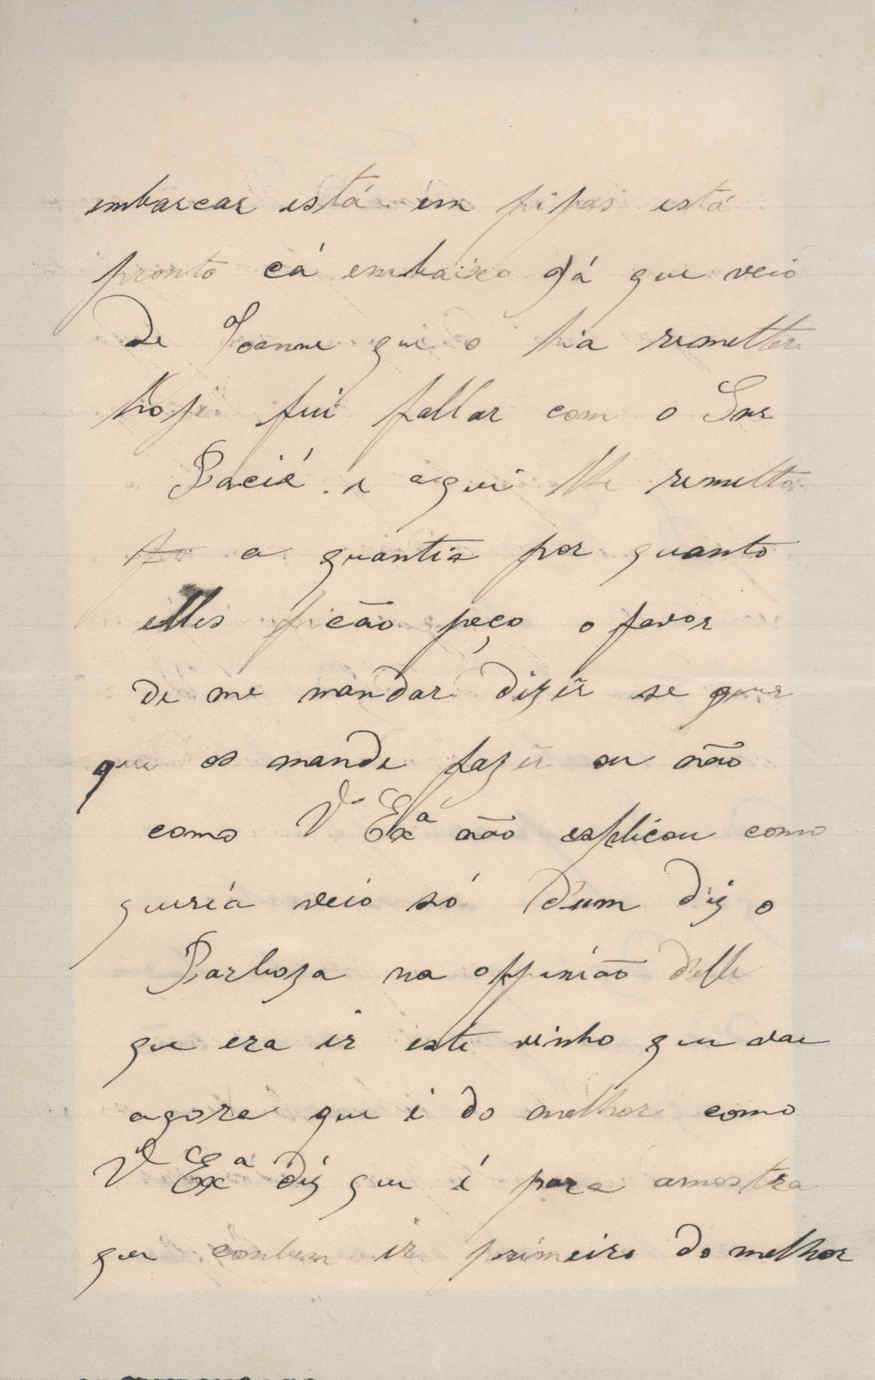 embarcar está em pipas está
pronto cá embaixo já que veio
de Joanne que o hia remetter
Hoje fui fallar com o Snr
e aqui lhe remetto
a quantia por quanto
elles ficão peço o favor
de me mandar dizer se quer
que os mande fazer ou não
como Vª Exª não esplicou como
queria veio só d'um diz o
Barboza na oppinião d'elle
que era ir este vinho que vae
agora que é do melhor como
Vª Exª diz que é para amostra
que ir primeiro do melhor